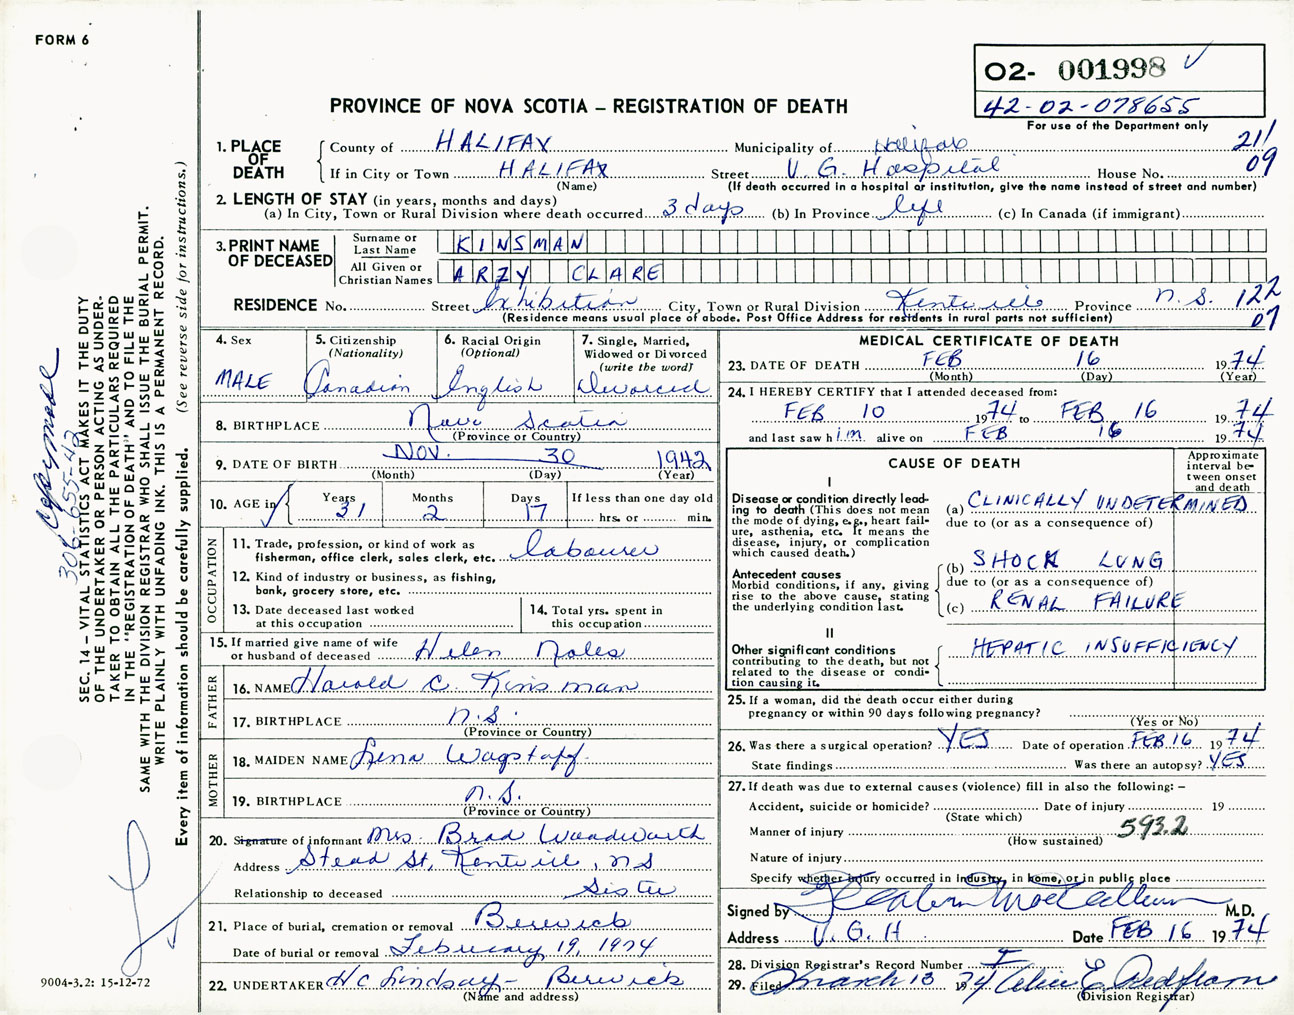 FORM 6
O2- 001998
42-02-078655
For use of the Department only
PROVINCE OF NOVA SCOTIA – REGISTRATION OF DEATH
211
09
1. PLACE OF DEATH
County of HALIFAX Municipality of Halifax
If in City or Town HALIFAX Street V. G. Hospital House No.
(Name) (If death occurred in a hospital or institution, give the name instead of street and number)
2. LENGTH OF STAY (in years, months and days)
(a) In City, Town or Rural Division where death occurred 3 days (b) In Province life (c) In Canada (if immigrant)
3. PRINT NAME OF DECEASED
Surname or Last Name KINSMAN
All Given or Christian Names ARZY CLARE
RESIDENCE No. Street Exhibition City, Town or Rural Division Kentville Province N.S. 122
07
(Residence means usual place of abode. Post Office Address for residents in rural parts not sufficient)
4. Sex
MALE
5. Citizenship
(Nationality)
Canadian
6. Racial Origin
(Optional)
English
7. Single, Married,
Widowed or Divorced
(write the word)
Divorced
8. BIRTHPLACE Nova Scotia
(Province or Country)
9. DATE OF BIRTH NOV. 30 1942
(Month) (Day) (Year)
10. AGE in
Years Months Days If less than one day old
31 2 17 hrs. or min.
OCCUPATION
11. Trade, profession, or kind of work as
fisherman, office clerk, sales clerk, etc. labourer
12. Kind of industry or business, as fishing,
bank, grocery store, etc.
13. Date deceased last worked
at this occupation
14. Total yrs. spent in
this occupation
15. If married give name of wife
or husband of deceased Helen Noles
FATHER
16. NAME Harold C. Kinsman
17. BIRTHPLACE N.S.
(Province or Country)
MOTHER
18. MAIDEN NAME Lena Wagstaff
19. BIRTHPLACE N.S.
(Province or Country)
20. Signature of informant Mrs. Brad Woodworth
Address Stead St, Kentville, NS
Relationship to deceased Sister
21. Place of burial, cremation or removal Berwick
Date of burial or removal February 19, 1974
22. UNDERTAKER H C Lindsay - Berwick
(Name and address)
MEDICAL CERTIFICATE OF DEATH
23. DATE OF DEATH FEB 16 1974
(Month) (Day) (Year)
24. I HEREBY CERTIFY that I attended deceased from:
FEB 10 1974 to FEB 16 1974
and last saw him alive on FEB 16 1974
CAUSE OF DEATH
Approximate
interval be-
tween onset
and death
I
Disease or condition directly lead-
ing to death (This does not mean
the mode of dying, e.g., heart fail-
ure, asthenia, etc. It means the
disease, injury, or complication
which caused death.)
(a) CLINICALLY UNDETERMINED
due to (or as a consequence of)
Antecedent causes
Morbid conditions, if any, giving
rise to the above cause, stating
the underlying condition last.
(b) SHOCK LUNG
due to (or as a consequence of)
(c) RENAL FAILURE
II
Other significant conditions
contributing to the death, but not
related to the disease or condi-
tion causing it.
HEPATIC INSUFFICIENCY
25. If a woman, did the death occur either during
pregnancy or within 90 days following pregnancy?
(Yes or No)
26. Was there a surgical operation? YES Date of operation FEB 16 1974
State findings Was there an autopsy? YES
27. If death was due to external causes (violence) fill in also the following: –
Accident, suicide or homicide? Date of injury 19
(State which)
Manner of injury 593.2
(How sustained)
Nature of injury
Specify whether injury occurred in industry, in home, or in public place
Signed by M.D.
Address V. G. H Date FEB 16 1974
28. Division Registrar's Record Number
29. Filed March 13 1974
(Division Registrar)
SEC. 14 – VITAL STATISTICS ACT MAKES IT THE DUTY
OF THE UNDERTAKER OR PERSON ACTING AS UNDER-
TAKER TO OBTAIN ALL THE PARTICULARS REQUIRED
IN THE "REGISTRATION OF DEATH" AND TO FILE THE
SAME WITH THE DIVISION REGISTRAR WHO SHALL ISSUE THE BURIAL PERMIT.
WRITE PLAINLY WITH UNFADING INK. THIS IS A PERMANENT RECORD.
Every item of information should be carefully supplied. (See reverse side for instructions.)
306-655-42
9004-3.2: 15-12-72